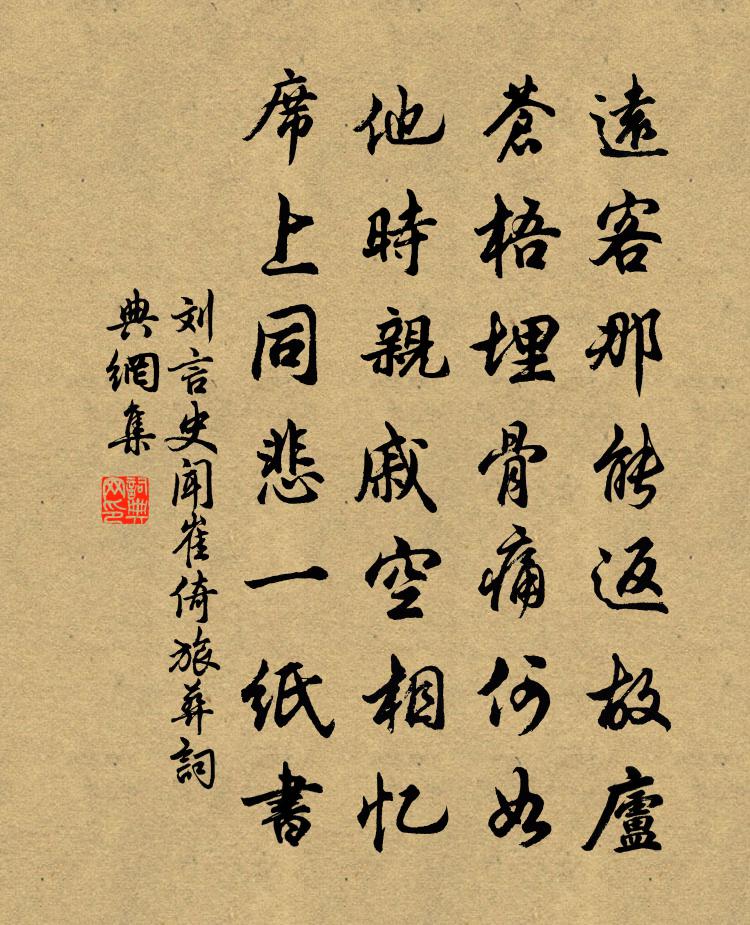 遠客那能返故廬
蒼梧埋骨痛何如
他時親戚空相忆
席上同悲一紙書
刘言史闻崔倚旅葬詞
典網集
詞典
网印